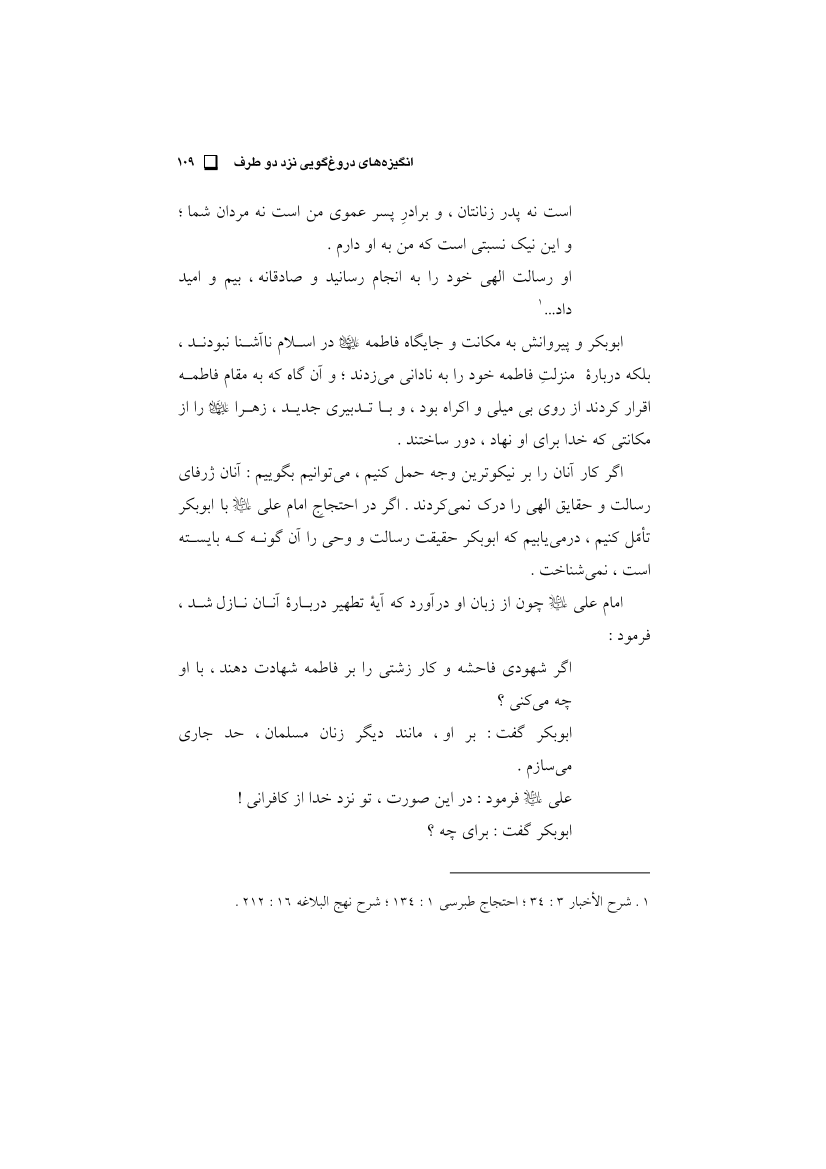 انگیزه‌های دروغ‌گویی نزد دو طرف ❑ ۱۰۹
است نه پدر زنانتان ، و برادرِ پسر عموی من است نه مردان شما ؛
و این نیک نسبتی است که من به او دارم .
او رسالت الهی خود را به انجام رسانید و صادقانه ، بیم و امید
داد...۱
ابوبکر و پیروانش به مکانت و جایگاه فاطمه در اسـلام ناآشـنا نبودنـد ،
بلکه دربارهٔ منزلتِ فاطمه خود را به نادانی می‌زدند ؛ و آن گاه که به مقام فاطمـه
اقرار کردند از روی بی میلی و اکراه بود ، و بـا تـدبیری جدیـد ، زهـرا را از
مکانتی که خدا برای او نهاد ، دور ساختند .
اگر کار آنان را بر نیکوترین وجه حمل کنیم ، می‌توانیم بگوییم : آنان ژرفای
رسالت و حقایق الهی را درک نمی‌کردند . اگر در احتجاجِ امام علی با ابوبکر
تأمّل کنیم ، درمی‌یابیم که ابوبکر حقیقت رسالت و وحی را آن گونـه کـه بایسـته
است ، نمی‌شناخت .
امام علی چون از زبان او درآورد که آیهٔ تطهیر دربـارهٔ آنـان نـازل شـد ،
فرمود :
اگر شهودی فاحشه و کار زشتی را بر فاطمه شهادت دهند ، با او
چه می‌کنی ؟
ابوبکر گفت : بر او ، مانند دیگر زنان مسلمان ، حد جاری
می‌سازم .
علی فرمود : در این صورت ، تو نزد خدا از کافرانی !
ابوبکر گفت : برای چه ؟
۱ . شرح الأخبار ۳ : ۳٤ ؛ احتجاج طبرسی ۱ : ۱۳٤ ؛ شرح نهج البلاغه ۱٦ : ۲۱۲ .